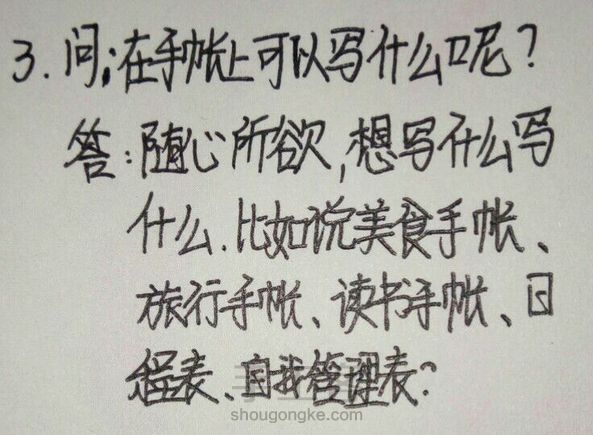 3.问:在手帐上可以写什么呢?
答:随心所欲,想写什么写
什么.比如说美食手帐、
旅行手帐、读书手帐、日
程表、自我管理表?
shougongke.com